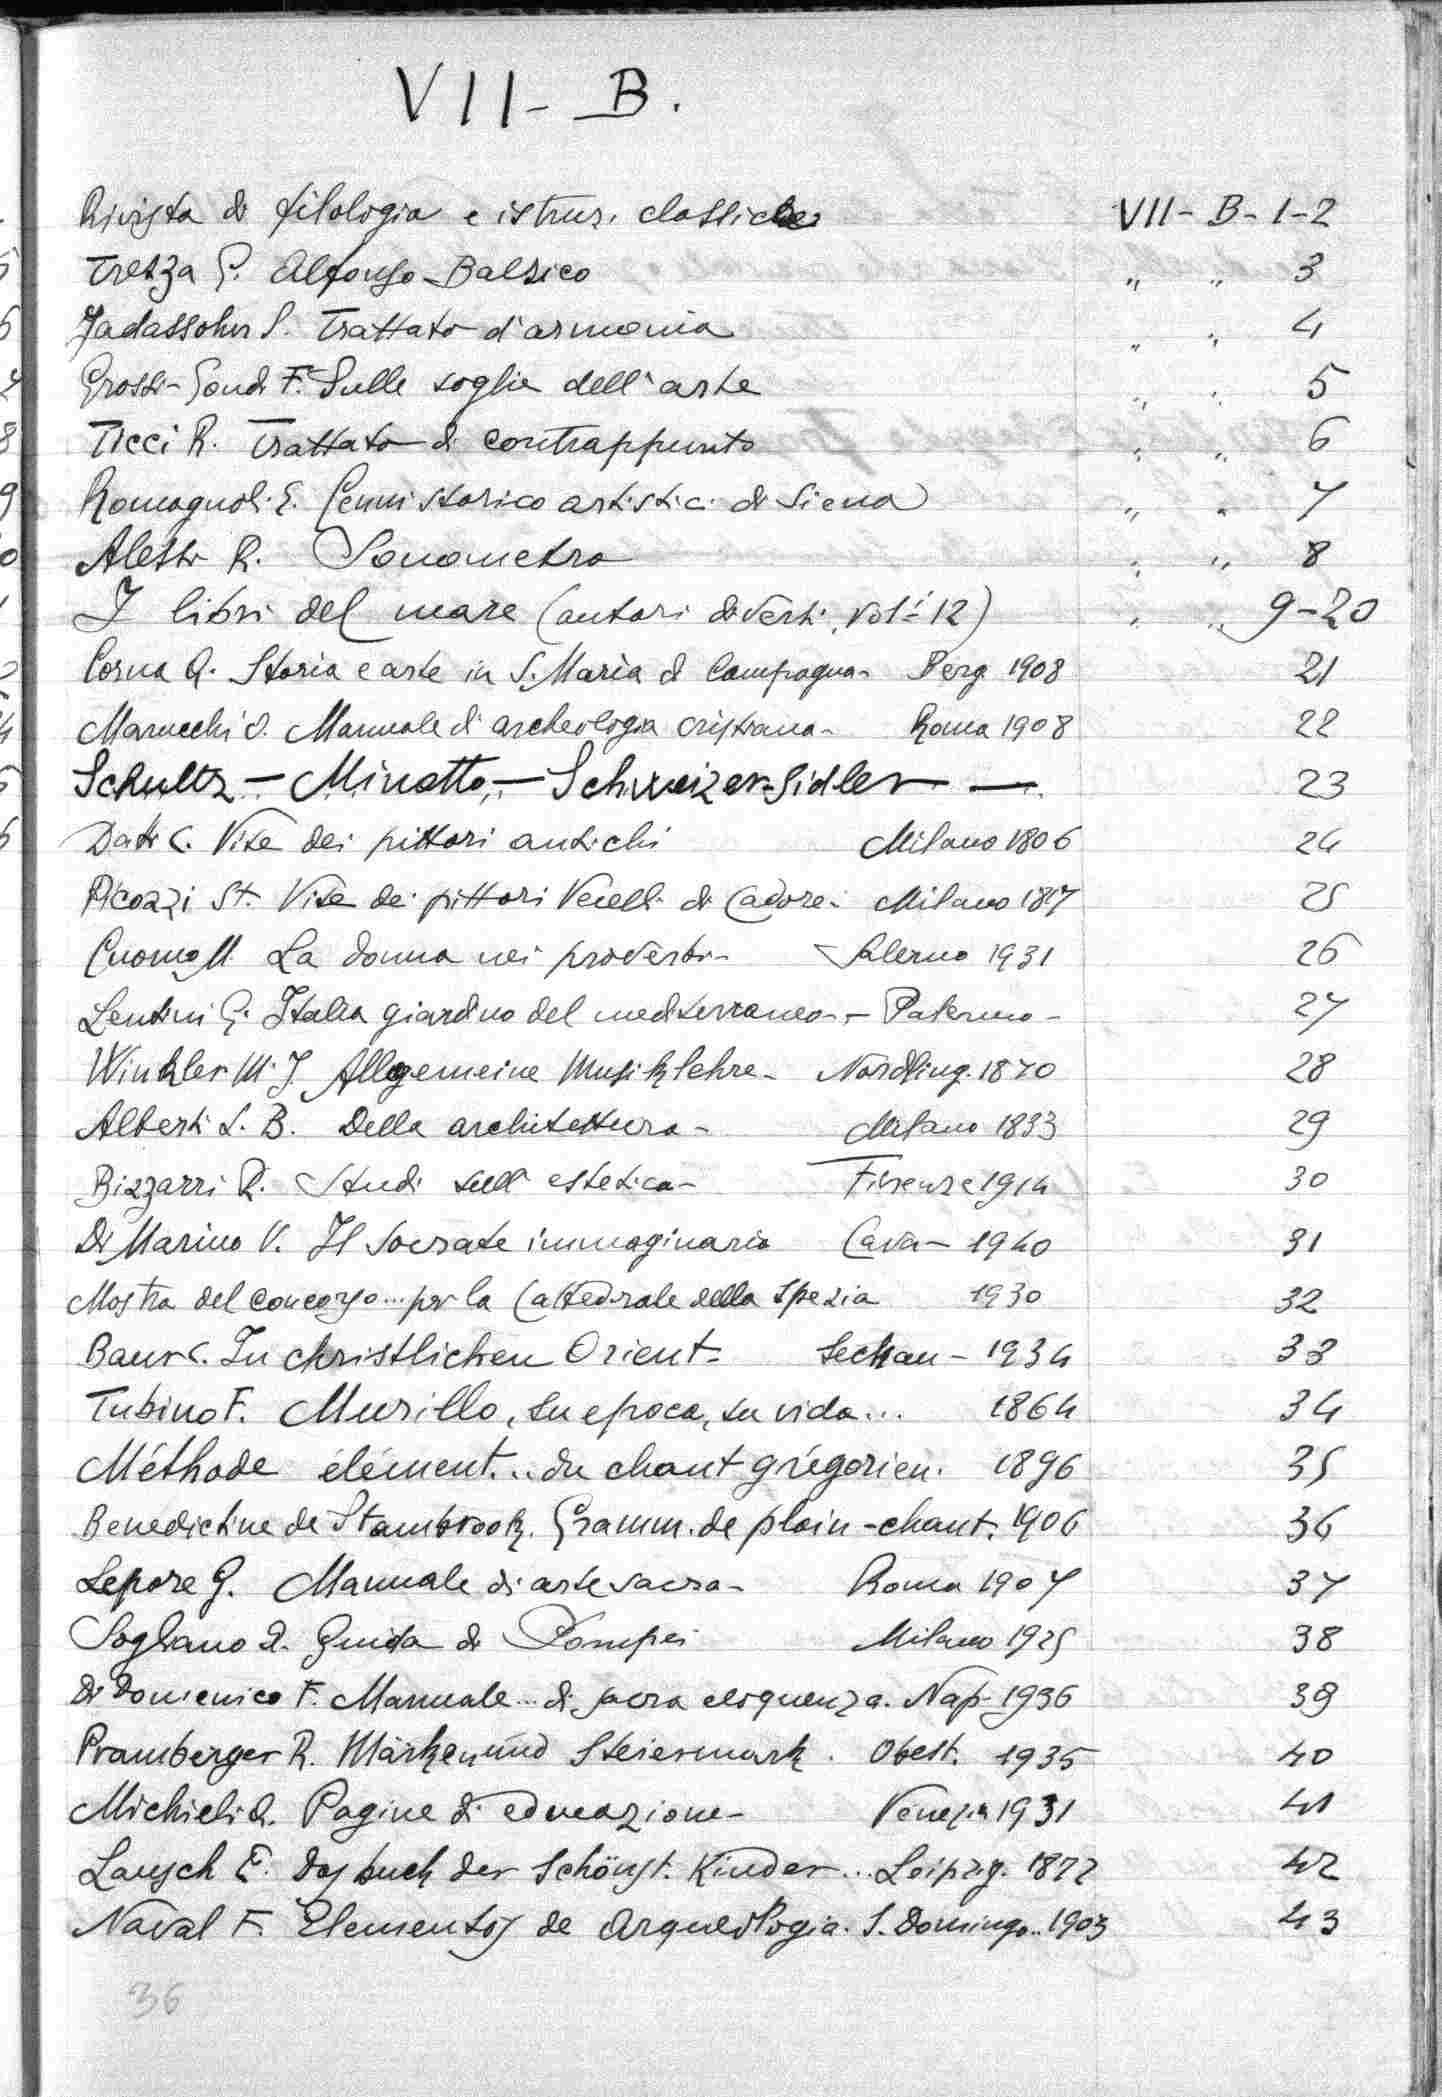 VII - B.
Rivista di filologia e istruz. classiche VII - B - 1-2
Trezza G. Alfonso Balzico " " 3
Jadassohn S. Trattato d'armonia " " 4
Grossi-Gondi F. Sulle soglie dell'arte " " 5
Ticci R. Trattato di contrappunto " " 6
Romagnoli E. Cenni storico artistici di Siena " " 7
Alessi R. Sonometro " " 8
I libri del mare (autori diversi, vol. 12) " " 9-20
Corna A. Storia e arte in S. Maria di Campagna - Berg 1908 21
Marucchi O. Manuale di archeologia cristiana - Roma 1908 22
Schultz - Minotto - Schweizer-Sidler - 23
Dati C. Vite dei pittori antichi Milano 1806 24
Ticozzi St. Vite dei pittori Vecelli di Cadore - Milano 1817 25
Cuomo M. La donna nei proverbi - Salerno 1931 26
Lentini G. Italia giardino del mediterraneo - Palermo - 27
Winkler M. J. Allgemeine Musiklehre - Nordling. 1870 28
Alberti L. B. Della architettura - Milano 1833 29
Bizzarri R. Studi sull'estetica - Firenze 1914 30
Di Marino V. Il Socrate immaginario Cava - 1940 31
Mostra del concorso ... per la Cattedrale della Spezia 1930 32
Baur C. In christlichen Orient - Seckau - 1934 33
Tubino F. Murillo, su epoca, su vida ... 1864 34
Méthode élément. .. du chant grégorien. 1896 35
Benedictine de Stambrook. Gramm. de plain-chant. 1906 36
Lepore G. Manuale di arte sacra - Roma 1907 37
Sogliano A. Guida di Pompei Milano 1925 38
Di Domenico F. Manuale ... di sacra eloquenza. Nap. 1936 39
Pramberger R. Märken und Steiermark. Obest. 1935 40
Michieli A. Pagine di educazione - Venezia 1931 41
Lausch E. Das buch der Schönst. Kinder ... Leipzig. 1872 42
Naval F. Elementos de Arqueologia. S. Domingo .. 1903 43
36